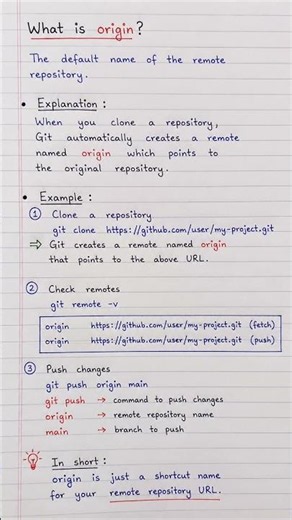 What is origin?
The default name of the remote
repository.
• Explanation :
When you clone a repository,
Git automatically creates a remote
named origin which points to
the original repository.
• Example :
① Clone a repository
git clone https://github.com/user/my-project.git
⇒ Git creates a remote named origin
that points to the above URL.
② Check remotes
git remote -v
origin https://github.com/user/my-project.git (fetch)
origin https://github.com/user/my-project.git (push)
③ Push changes
git push origin main
git push → command to push changes
origin → remote repository name
main → branch to push
In short :
origin is just a shortcut name
for your remote repository URL.